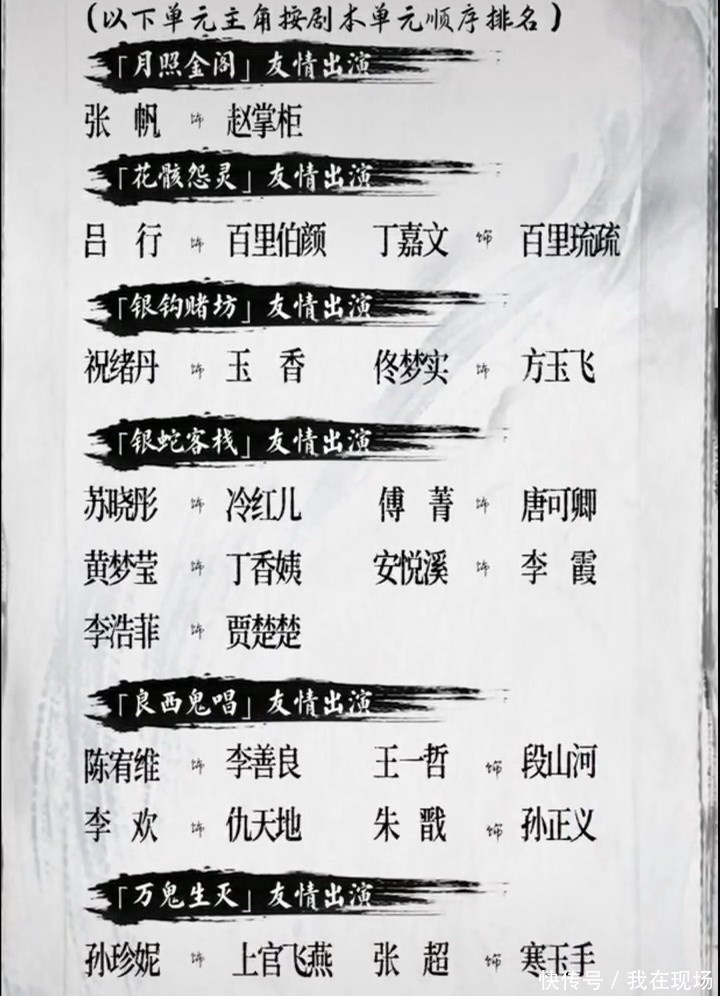 （以下单元主角按剧本单元顺序排名）
「月照金阁」友情出演
张 帆 饰 赵掌柜
「花骸怨灵」友情出演
吕 行 饰 百里伯颜 丁嘉文 饰 百里琉疏
「银钩赌坊」友情出演
祝绪丹 饰 玉 香 佟梦实 饰 方玉飞
「银蛇客栈」友情出演
苏晓彤 饰 冷红儿 傅 菁 饰 唐可卿
黄梦莹 饰 丁香姨 安悦溪 饰 李 霞
李浩菲 饰 贾楚楚
「良西鬼唱」友情出演
陈宥维 饰 李善良 王一哲 饰 段山河
李 欢 饰 仇天地 朱 戬 饰 孙正义
「万鬼生灭」友情出演
孙珍妮 饰 上官飞燕 张 超 饰 寒玉手
快传号 / 我在现场